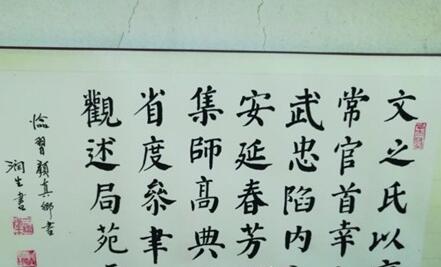 文之氏以
常官首幸
武忠陷内
安延春芳
集師高典
省度叅聿
觀述局苑
临習顔真卿書
润生書